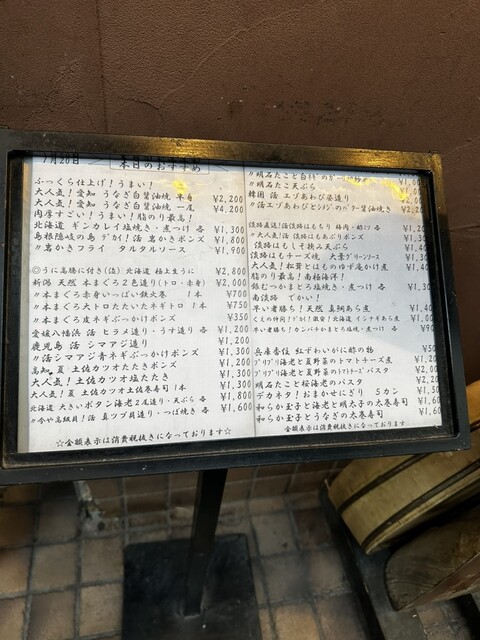 7月20日 本日のおすすめ
ふっくら仕上げ！うまい！
大人気！愛知 うなぎ白醤油焼 半身 ¥2,200
大人気！愛知 うなぎ白醤油焼 一尾 ¥4,200
肉厚すごい！うまい！脂のり最高！
北海道 ギンカレイ塩焼き・煮つけ 各 ¥1,300
島根隠岐の島 デカイ！活 岩かきポン酢 ¥1,800
〃岩かきフライ タルタルソース ¥1,900
◎うに高騰に付き(値) 北海道 極上生うに ¥2,800
新潟 天然 本まぐろ２色造り(トロ・赤身) ¥2,000
〃本まぐろ赤身いっぱい鉄火巻 1本 ¥700
〃本まぐろ大トロたたいたネギトロ 1本 ¥750
〃本まぐろ直ネギぶっかけポン酢 ¥350
愛媛八幡浜 活 ヒラメ造り・うす造り 各 ¥1,200
鹿児島 活 シマアジ造り ¥1,200
〃活シマアジ青ネギぶっかけポンズ ¥1,300
高知 夏 土佐カツオたたきポンズ ¥1,300
大人気！土佐カツオ塩たたき ¥1,300
大人気！夏 土佐カツオ土佐巻寿司 1本 ¥1,800
北海道 大きいボタン海老２尾造り・天ぷら 各 ¥1,600
〃今や高級貝！活 真ツブ貝造り・つぼ焼き 各
☆金額表示は消費税抜きになっております☆
〃明石たこ天ぷら
韓国 活 エゾあわび姿造り
〃活エゾあわびとリンのバター醤油焼き ¥2,20
淡路直送！活淡路はもちり 梅肉・酢ミソ 各
〃大人気！活 淡路はもあぶりポンズ
淡路はもしそ挟み天ぷら
淡路はもチーズ焼 大葉グリーンソース
大人気！松茸とはものゆず庵かけ煮 ¥1,40
脂のり最高！南極海洋！
銀むつかまとろ塩焼き・煮つけ 各
南淡路 でかい！
早い者勝ち！天然 真鯛あら煮
早い者勝ち！カンパチかまとろ塩焼・煮つけ 各 ¥90
兵庫香住 紅ずわいがに酢の物
プリプリ海老と夏野菜のトマトチーズ煮 ¥1,2
プリプリ海老と夏野菜のトマトパスタ ¥2,00
明石たこと桜海老のパスタ ¥2,2
デカネタ！おまかせにぎり ５カン ¥1,5
和らか玉子と海老と明太子の太巻寿司 ¥1,4
和らか玉子とうなぎの太巻寿司 ¥1,6
金額表示は消費税抜きになっております